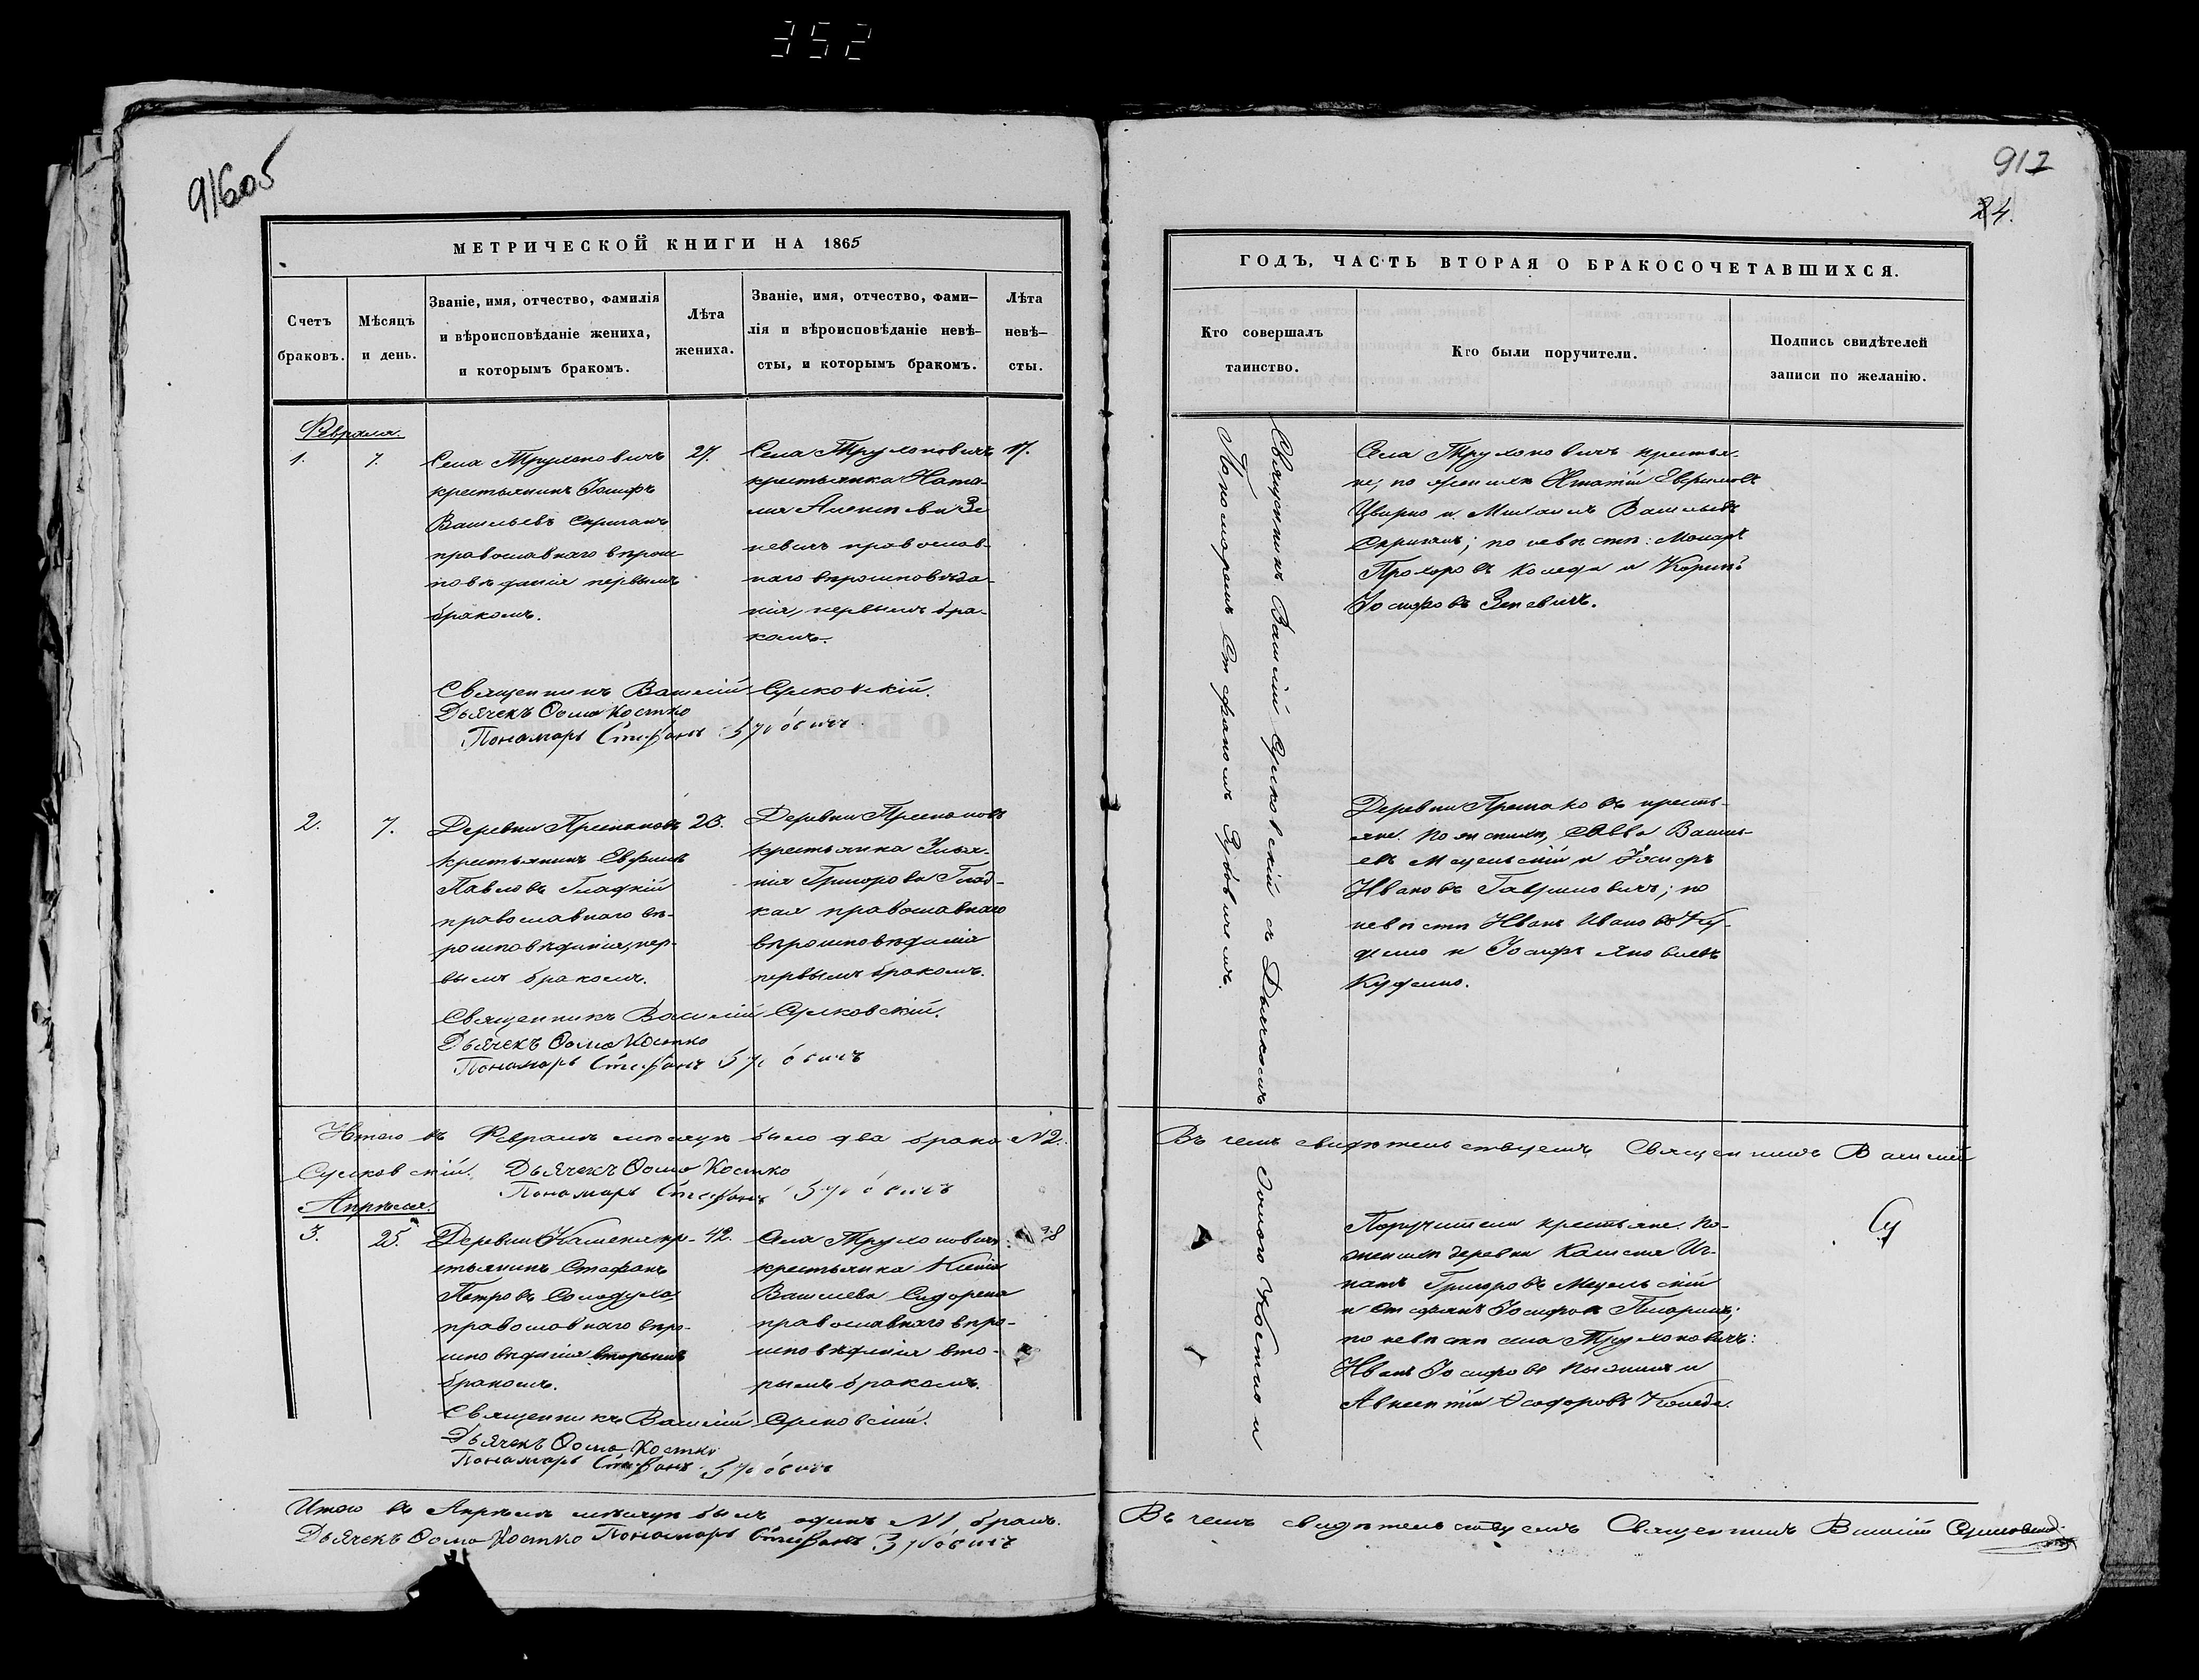 352
91605
МЕТРИЧЕСКОЙ КНИГИ НА 1865
Счетъ браковъ.
Мѣсяцъ и день.
Званіе, имя, отчество, фамилія
и вѣроисповѣданіе жениха,
и которымъ бракомъ.
Лѣта жениха.
Званіе, имя, отчество, фами-
лія и вѣроисповѣданіе невѣ-
сты, и которымъ бракомъ.
Лѣта невѣ-
сты.
Февраля.
1.
7.
Села Трухоновичъ
крестьянинъ Іосифъ
Васильевъ Скриганъ
православнаго вѣроис-
повѣданія первымъ
бракомъ.
27.
Села Трухоновичъ
крестьянка Ната-
лія
православ-
наго вѣроисповѣда-
нія, первымъ бра-
комъ.
17.
Священникъ Василій Сулковскій.
Дьячекъ Ѳома Костко
Пономарь Стефанъ Зубовичъ
2.
7.
Деревни
крестьянинъ Евфимъ
Павловъ Гладкій
православнаго вѣ-
роисповѣданія, пер-
вымъ бракомъ.
23.
Деревни
крестьянка Улья-
нія Григорова Глад-
кая православнаго
вѣроисповѣданія
первымъ бракомъ.
Священникъ Василій Сулковскій.
Дьячекъ Ѳома Костко
Пономарь Стефанъ Зубовичъ
Итого въ Февралѣ мѣсяцѣ было два брака №2.
Сулковскій. Дьячекъ Ѳома Костко
Пономарь Стефанъ Зубовичъ
Апрѣля.
3.
25.
Деревни Камена кре-
стьянинъ Стефанъ
Петровъ Солодуха
православнаго вѣро-
исповѣданія вторымъ
бракомъ.
42.
Села Трухоновичъ
крестьянка Ксенія
Васильева Сидорена
православнаго вѣро-
исповѣданія вто-
рымъ бракомъ.
38
Священникъ Василій Сулковскій.
Дьячекъ Ѳома Костко
Пономарь Стефанъ Зубовичъ
Итого въ Апрѣлѣ мѣсяцѣ былъ одинъ №1 бракъ.
Дьячекъ Ѳома Костко Пономарь Стефанъ Зубовичъ
912
24.
ГОДЪ, ЧАСТЬ ВТОРАЯ О БРАКОСОЧЕТАВШИХСЯ.
Кто совершалъ
таинство.
Кто были поручители.
Подпись свидѣтелей
записи по желанію.
Священникъ Василій Сулковскій съ Дьячкомъ Ѳомою Костко и
Пономоремъ Стефаномъ Зубовичемъ.
Села Трухоновичъ крестья-
не, по женихѣ Игнатій
Цвирко и Михаилъ Васильевъ
Скриганъ; по невѣстѣ: Макаръ
Прохоровъ Коледа и
Іосифовъ Зеневичъ.
Деревни крестья-
не. По женихѣ, Савва Василь-
евъ Мецельскій и Іосифъ
Ивановъ Гавриловичъ; по
невѣстѣ Иванъ Ивановъ Ку-
делко и Іосифъ Яковлевъ
Куделко.
Въ чемъ свидѣтельствуетъ Священникъ Василій
Су
Поручители крестьяне. По
женихѣ деревни Камена Иг-
натъ Григоровъ Мецельскій
и Стефанъ Іосифовъ
по невѣстѣ села Трухоновичъ:
Иванъ Іосифовъ и
Авксентій Ѳеодоровъ Коледа.
Въ чемъ свидѣтельствуетъ Священникъ Василій Сулковскій.